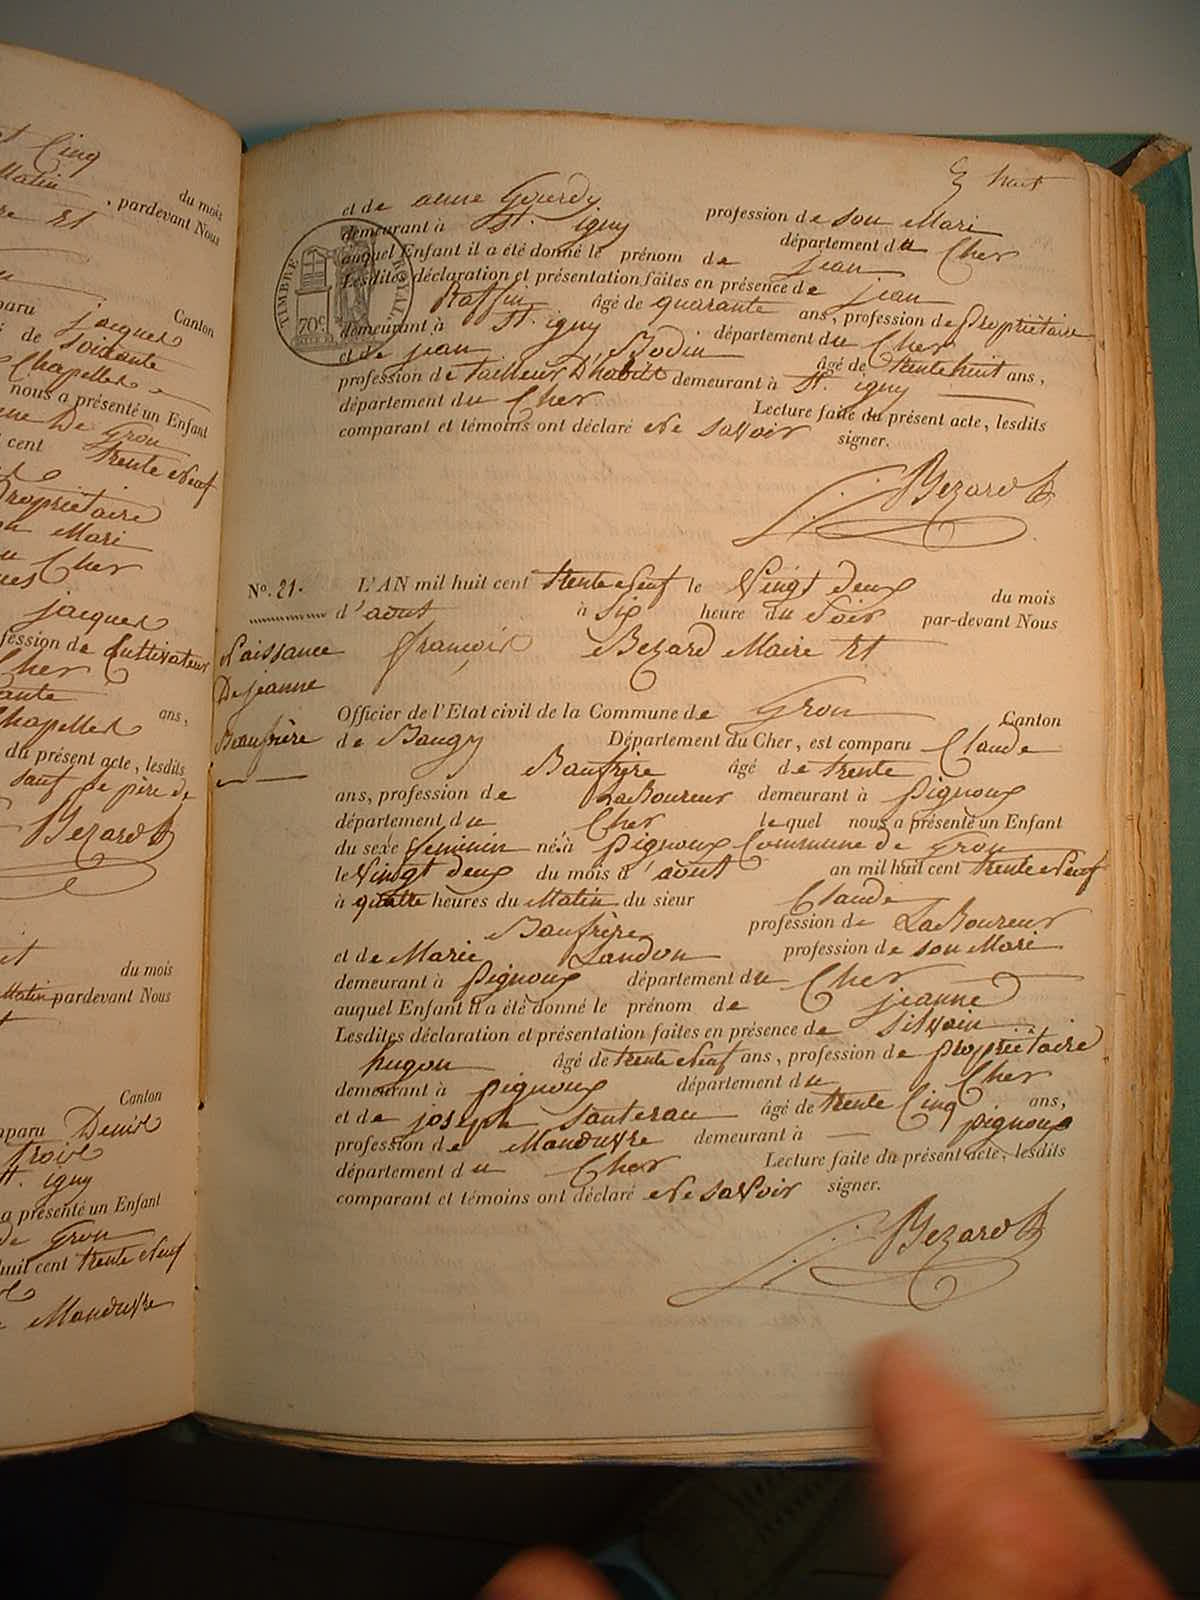 Cinq
Matin
du mois
, pardevant Nous
Et
Canton
jacques
de soixante
Chapelles
nous a présenté un Enfant
De Gron
cent trente Neuf
Propriétaire
Mari
Cher
jacques
fession de Cultivateur
Cher
ans,
Chapelles
du présent acte, lesdits
sauf le père de
Bezard
du mois
Matin pardevant Nous
Canton
mparu Denis
trois
St. igny
a présenté un Enfant
de Gron
huit cent trente Neuf
Manœuvre
huit
et de anne Gourdy profession de son Mari
demeurant à St. igny département du Cher
auquel Enfant il a été donné le prénom de jean
Lesdites déclaration et présentation faites en présence de jean
Raffin âgé de quarante ans, profession de Propriétaire
demeurant à St. igny département du Cher
et de jean Bodin âgé de trente huit ans,
profession de tailleur D'habits demeurant à St. igny
département du Cher Lecture faite du présent acte, lesdits
comparant et témoins ont déclaré Ne savoir signer.
TIMBRE ROYAL
70c
Bezard
No. 21. L'AN mil huit cent trente Neuf le Vingt deux du mois
d'aout à Six heure du Soir par-devant Nous
Naissance françois Bezard Maire Et
De jeanne
Officier de l'Etat civil de la Commune de Gron Canton
Beaufrère de Baugy Département du Cher, est comparu Claude
Baufrère âgé de trente
ans, profession de LaBoureur demeurant à pignoux
département du Cher lequel nous a présenté un Enfant
du sexe feminin né à pignoux Commune de Gron
le Vingt deux du mois d'aout an mil huit cent trente Neuf
à quatre heures du Matin du sieur Claude
Baufrère profession de LaBoureur
et de Marie Landon profession de son Mari
demeurant à pignoux département du Cher
auquel Enfant il a été donné le prénom de jeanne
Lesdites déclaration et présentation faites en présence de silvain
hugon âgé de trente Neuf ans, profession de propriétaire
demeurant à pignoux département du Cher
et de joseph Sauterau âgé de trente Cinq ans,
profession de Manœuvre demeurant à pignoux
département du Cher Lecture faite du présent acte, lesdits
comparant et témoins ont déclaré Ne savoir signer.
Bezard